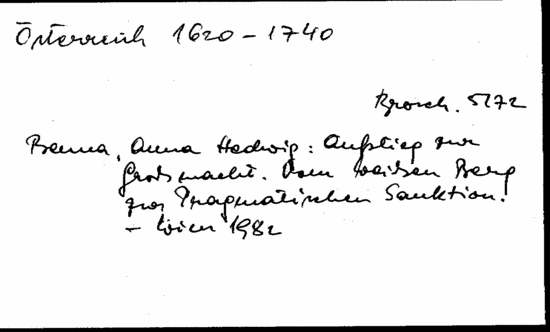 Österreich 1620 - 1740
Brosch. 5172
Benna, Anna Hedwig: Aufstieg zur
Großmacht. Vom weißen Berg
zur Pragmatischen Sanktion.
- Wien 1982